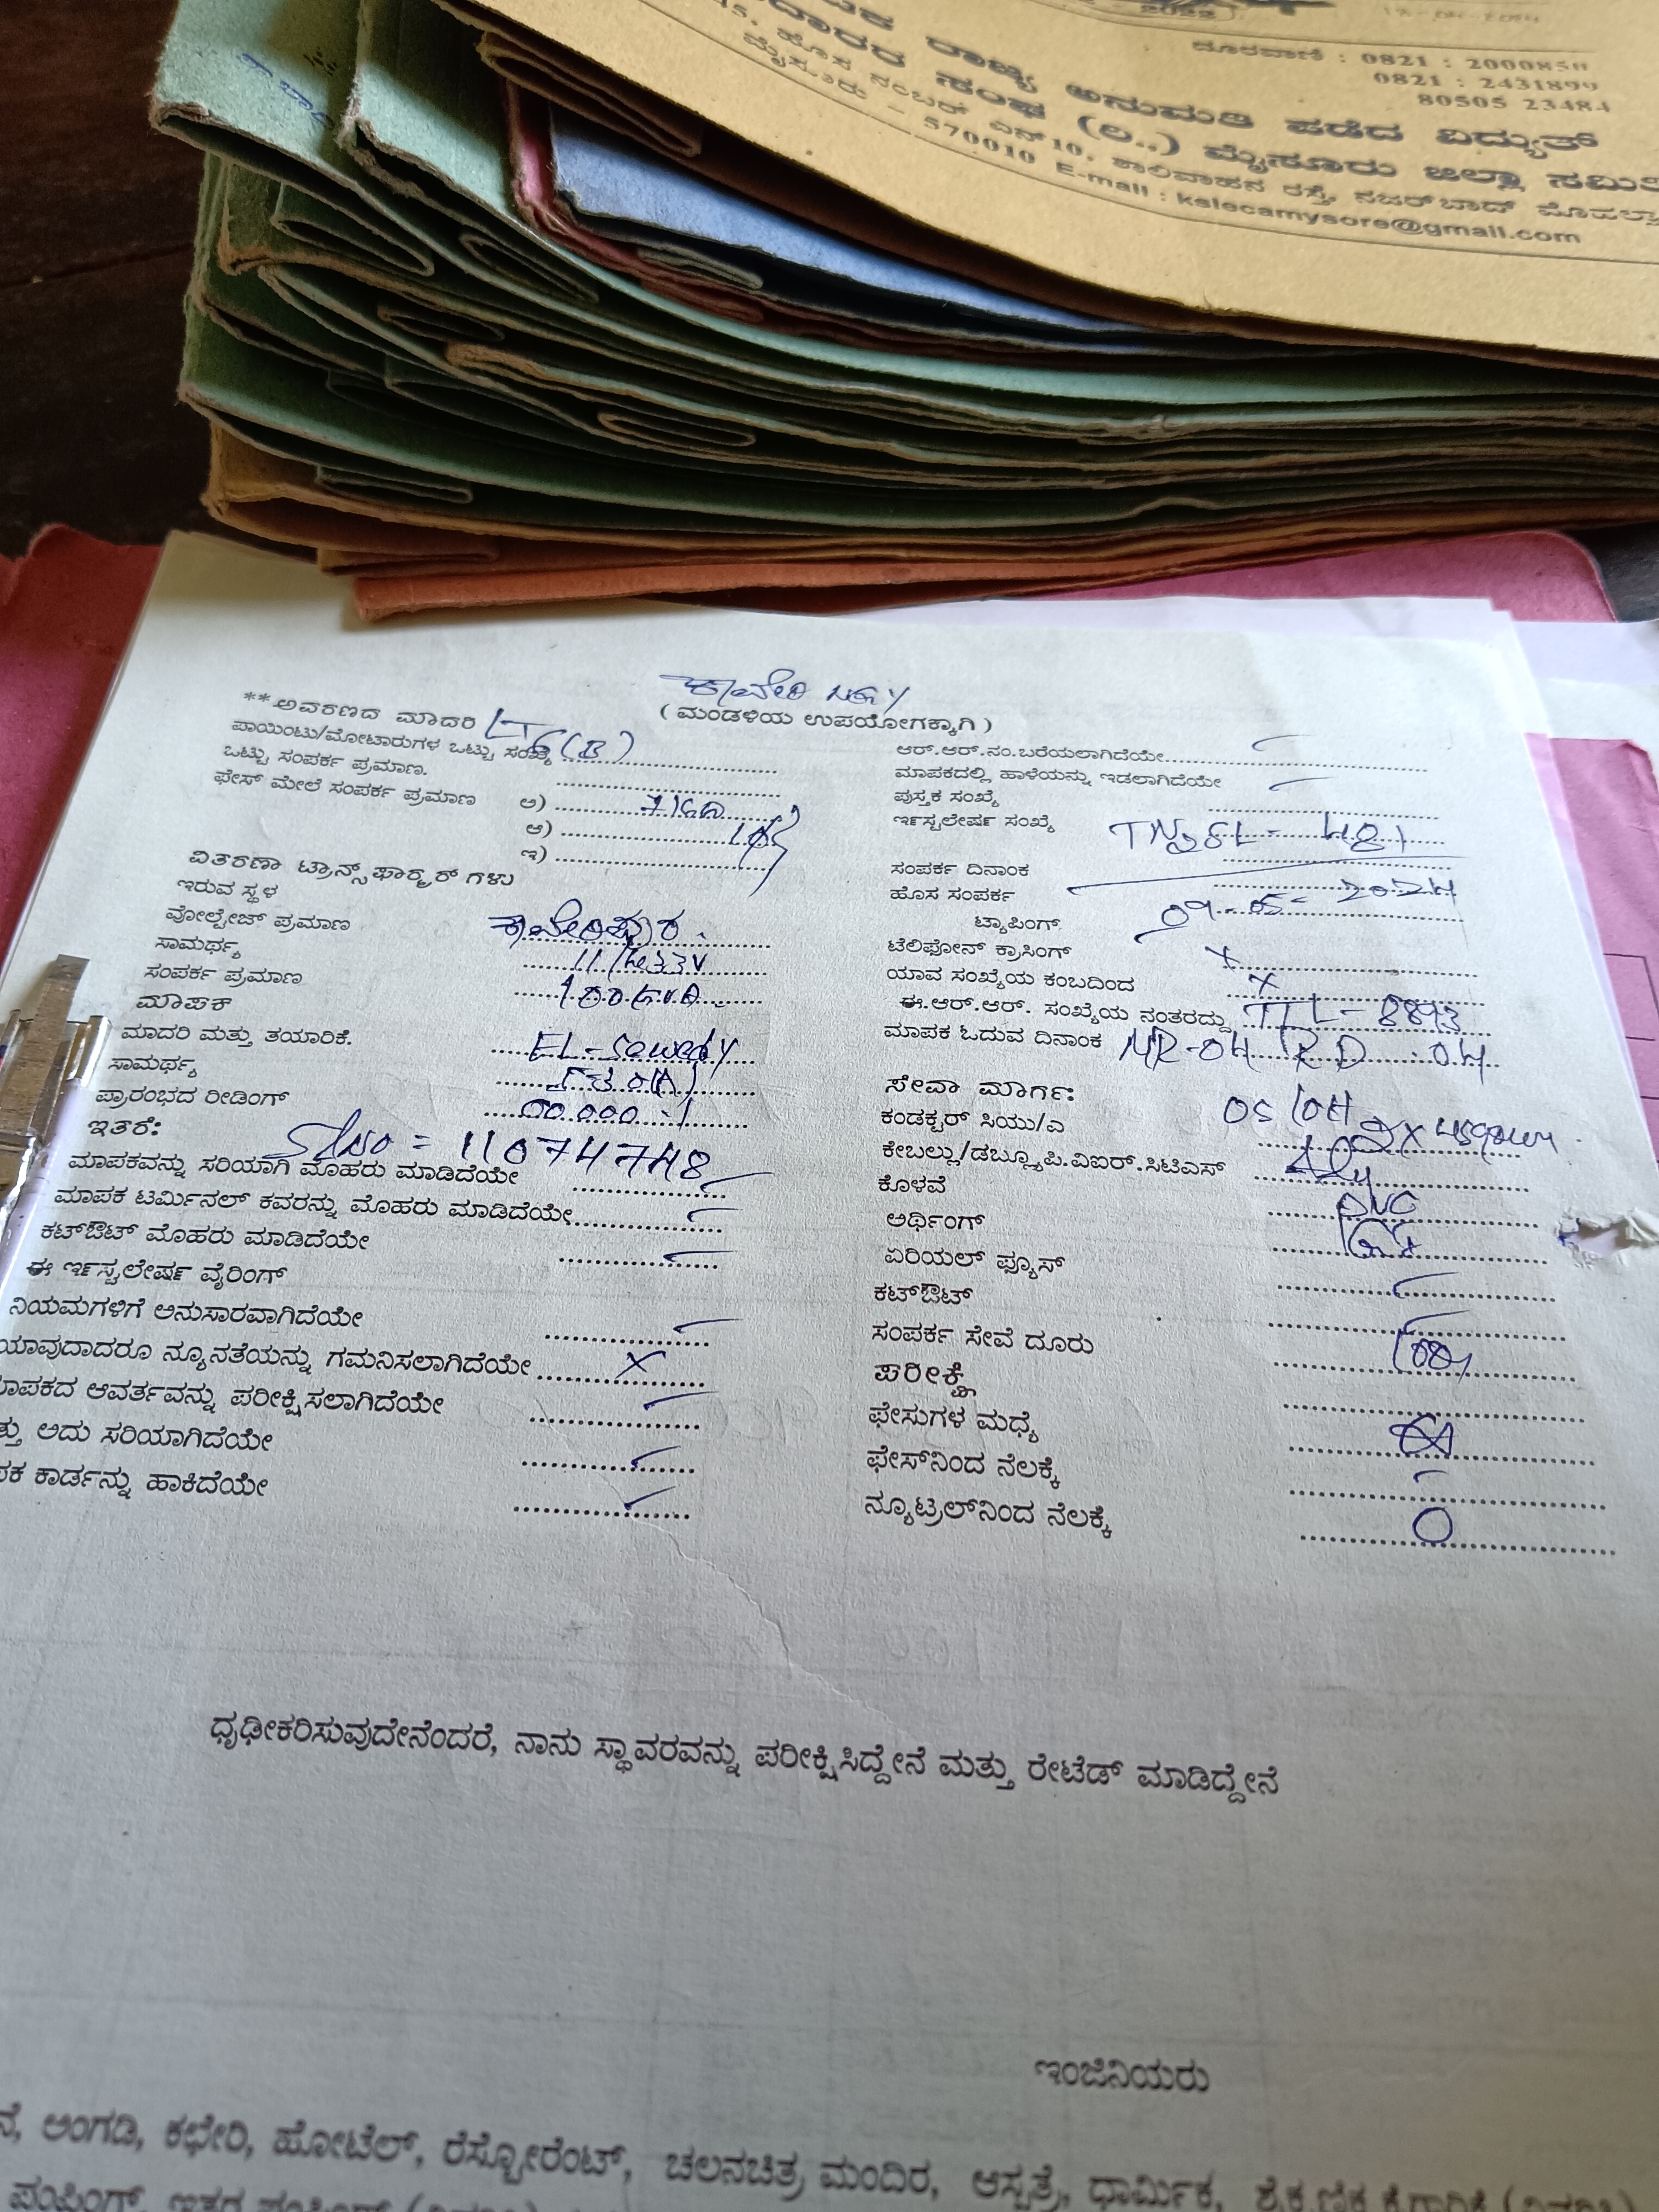 2022
ದೂರವಾಣಿ : 0821 : 2000850
0821 : 2431899
80505 23484
ರಾಜ್ಯ ಅನುಮತಿ ಪಡೆದ ವಿದ್ಯುತ್
ಸಂಘ (ರಿ..) ಮೈಸೂರು ಜಿಲ್ಲಾ ಸಮಿತಿ
ಹೊಸ ನಂಬರ್ ಎನ್10, ಶಾಲಿವಾಹನ ರಸ್ತೆ, ನಜರ್‌ಬಾದ್ ಮೊಹಲ್ಲಾ
ಮೈಸೂರು - 570010 E-mail : kslecamysore@gmail.com
ಕಾವೇರಿ
(ಮಂಡಳಿಯ ಉಪಯೋಗಕ್ಕಾಗಿ)
**ಆವರಣದ ಮಾದರಿ LT
ಪಾಯಿಂಟು/ಮೋಟಾರುಗಳ ಒಟ್ಟು ಸಂಖ್ಯೆ 6(B)
ಒಟ್ಟು ಸಂಪರ್ಕ ಪ್ರಮಾಣ.
ಫೇಸ್ ಮೇಲೆ ಸಂಪರ್ಕ ಪ್ರಮಾಣ ಅ)
ಆ)
ಇ)
ವಿತರಣಾ ಟ್ರಾನ್ಸ್‌ಫಾರ್ಮರ್ ಗಳು
ಇರುವ ಸ್ಥಳ ಕಾವೇರಿಪುರ.
ವೋಲ್ಟೇಜ್ ಪ್ರಮಾಣ
ಸಾಮರ್ಥ್ಯ
ಸಂಪರ್ಕ ಪ್ರಮಾಣ
ಮಾಪಕ
ಮಾದರಿ ಮತ್ತು ತಯಾರಿಕೆ. EL-Sewedy
ಸಾಮರ್ಥ್ಯ
ಪ್ರಾರಂಭದ ರೀಡಿಂಗ್
ಇತರೆ: Sl.No = 110747748
ಮಾಪಕವನ್ನು ಸರಿಯಾಗಿ ಮೊಹರು ಮಾಡಿದೆಯೇ
ಮಾಪಕ ಟರ್ಮಿನಲ್ ಕವರನ್ನು ಮೊಹರು ಮಾಡಿದೆಯೇ
ಕಟ್‌ಔಟ್ ಮೊಹರು ಮಾಡಿದೆಯೇ
ಈ ಇನ್‌ಸ್ಟಲೇಷನ್ ವೈರಿಂಗ್
ನಿಯಮಗಳಿಗೆ ಅನುಸಾರವಾಗಿದೆಯೇ
ಯಾವುದಾದರೂ ನ್ಯೂನತೆಯನ್ನು ಗಮನಿಸಲಾಗಿದೆಯೇ X
ಮಾಪಕದ ಆವರ್ತವನ್ನು ಪರೀಕ್ಷಿಸಲಾಗಿದೆಯೇ
ತ್ತು ಅದು ಸರಿಯಾಗಿದೆಯೇ
ಪಕ ಕಾರ್ಡನ್ನು ಹಾಕಿದೆಯೇ
ಆರ್.ಆರ್.ನಂ.ಬರೆಯಲಾಗಿದೆಯೇ
ಮಾಪಕದಲ್ಲಿ ಹಾಳೆಯನ್ನು ಇಡಲಾಗಿದೆಯೇ
ಪುಸ್ತಕ ಸಂಖ್ಯೆ
ಇನ್‌ಸ್ಟಲೇಷನ್ ಸಂಖ್ಯೆ
ಸಂಪರ್ಕ ದಿನಾಂಕ
ಹೊಸ ಸಂಪರ್ಕ 09-05-2024
ಟ್ಯಾಪಿಂಗ್
ಟೆಲಿಫೋನ್ ಕ್ರಾಸಿಂಗ್ X
ಯಾವ ಸಂಖ್ಯೆಯ ಕಂಬದಿಂದ X
ಈ.ಆರ್.ಆರ್. ಸಂಖ್ಯೆಯ ನಂತರದ್ದು TTL-8893
ಮಾಪಕ ಓದುವ ದಿನಾಂಕ MR-04 RD 04
ಸೇವಾ ಮಾರ್ಗ:
ಕಂಡಕ್ಟರ್ ಸಿಯು/ಎ OS/OH
ಕೇಬಲ್ಲು/ಡಬ್ಲ್ಯೂಪಿ.ವಿಐಆರ್.ಸಿಟಿಎಸ್
ಕೊಳವೆ PVC
ಅರ್ಥಿಂಗ್
ಏರಿಯಲ್ ಫ್ಯೂಸ್
ಕಟ್‌ಔಟ್
ಸಂಪರ್ಕ ಸೇವೆ ದೂರು
ಪರೀಕ್ಷೆ
ಫೇಸುಗಳ ಮಧ್ಯೆ
ಫೇಸ್‌ನಿಂದ ನೆಲಕ್ಕೆ
ನ್ಯೂಟ್ರಲ್‌ನಿಂದ ನೆಲಕ್ಕೆ 0
ಧೃಢೀಕರಿಸುವುದೇನೆಂದರೆ, ನಾನು ಸ್ಥಾವರವನ್ನು ಪರೀಕ್ಷಿಸಿದ್ದೇನೆ ಮತ್ತು ರೇಟೆಡ್ ಮಾಡಿದ್ದೇನೆ
ಇಂಜಿನಿಯರು
ನೆ, ಅಂಗಡಿ, ಕಛೇರಿ, ಹೋಟೆಲ್, ರೆಸ್ಟೋರೆಂಟ್, ಚಲನಚಿತ್ರ ಮಂದಿರ, ಆಸ್ಪತ್ರೆ, ಧಾರ್ಮಿಕ,
ಪಂಪಿಂಗ್, ಇತರ ಪಂಪಿಂಗ್